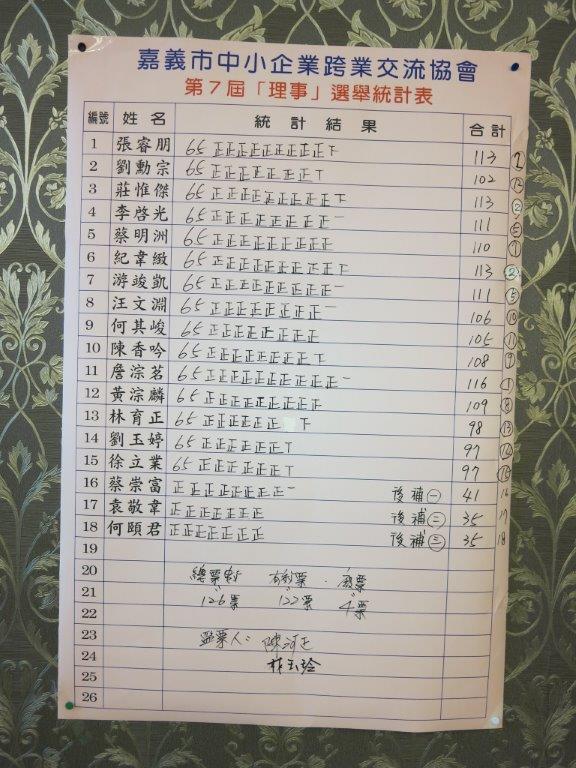 嘉義市中小企業跨業交流協會
第7屆「理事」選舉統計表
編號 姓名 統計結果 合計
1 張睿朋 65 正正正正正正正正正下 113 2
2 劉勳宗 65 正正正正正正正丅 102 12
3 莊惟傑 65 正正正正正正正正正下 113 2
4 李啓光 65 正正正正正正正正正一 111 5
5 蔡明洲 65 正正正正正正正正正 110 7
6 紀韋緻 65 正正正正正正正正正下 113 2
7 游竣凱 65 正正正正正正正正正一 111 5
8 汪文淵 65 正正正正正正正正一 106 10
9 何其峻 65 正正正正正正正正 105 11
10 陳香吟 65 正正正正正正正正下 108 9
11 詹淙茗 65 正正正正正正正正正正一 116 1
12 黃淙麟 65 正正正正正正正正下 109 8
13 林育正 65 正正正正正正下 98 13
14 劉玉婷 65 正正正正正正丅 97 14
15 徐立業 65 正正正正正正丅 97 15
16 蔡崇富 正正正正正正正正一 後補㊀ 41 16
17 袁敬韋 正正正正正正正 後補㊁ 35 17
18 何頤君 正正正正正正正 後補㊂ 35 18
19
20 總票數 有效票 廢票
21 126票 122票 4票
22
23 監票人: 陳河
24 林玉玲
25
26